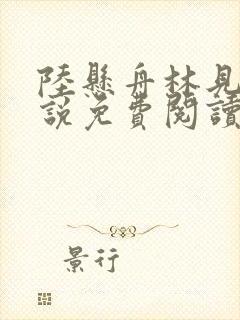 陸懸舟林見
說免費閱讀
景行